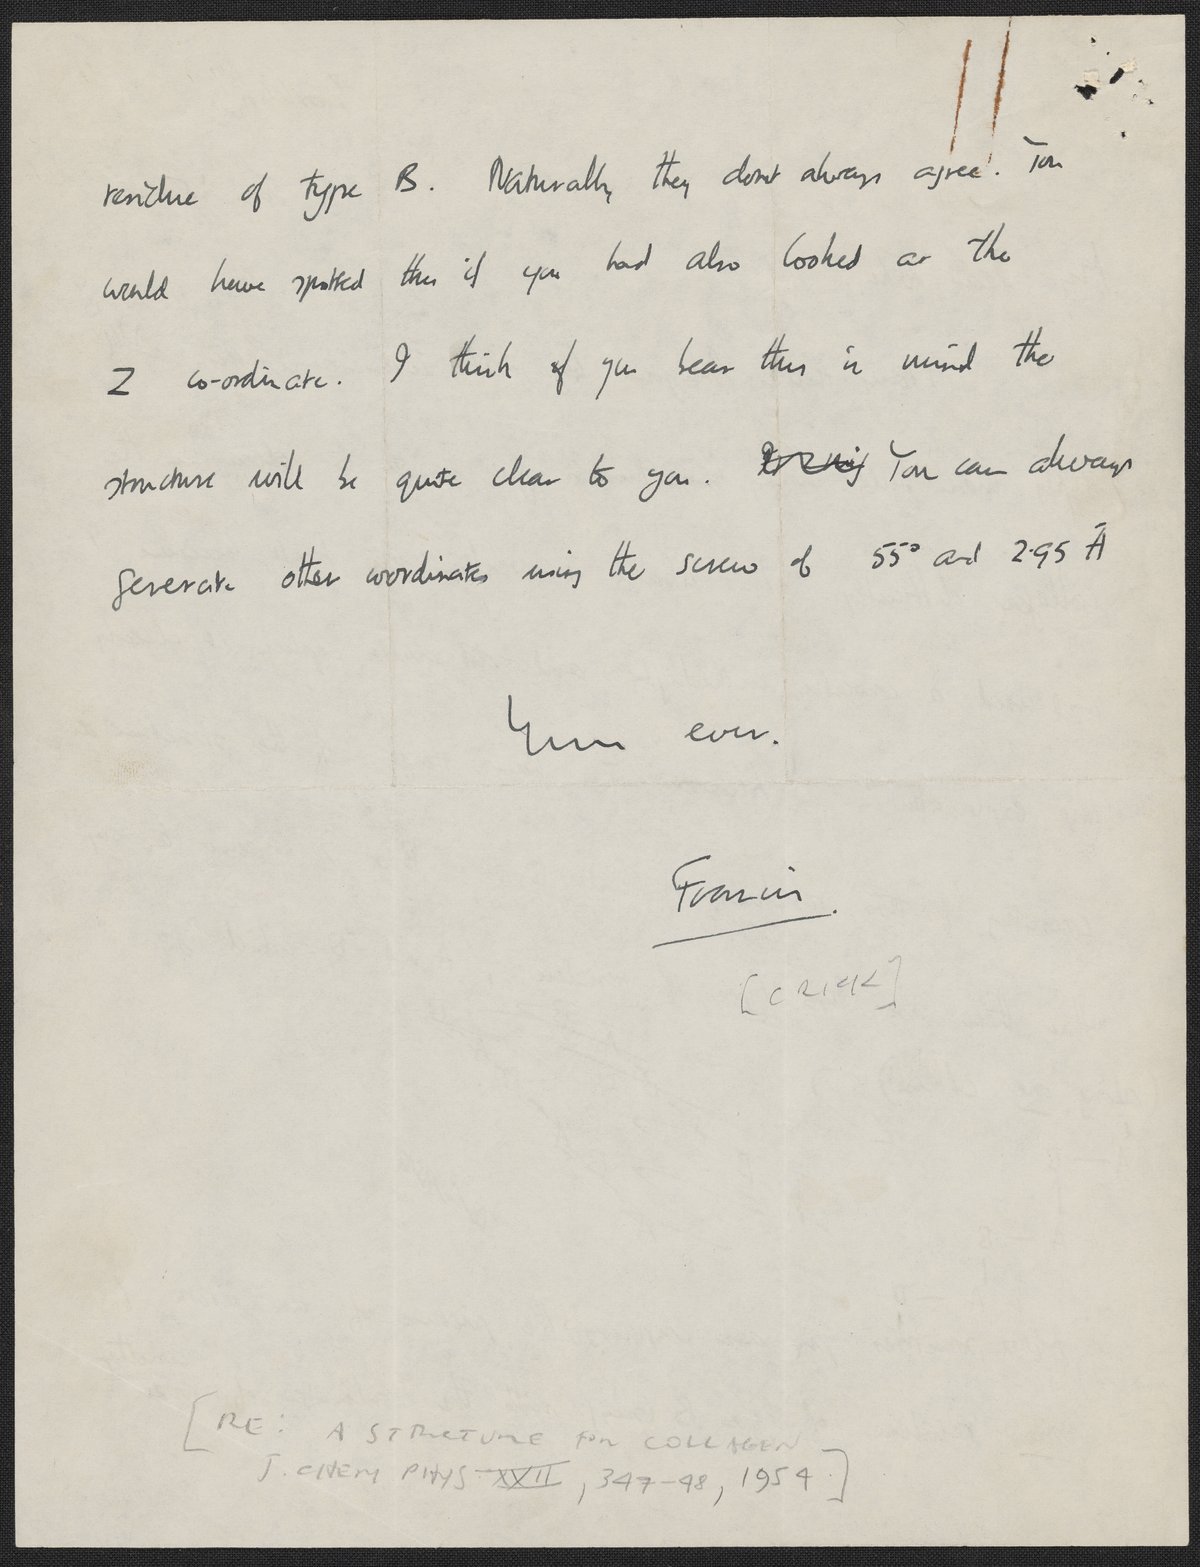 residue of type B. Naturally they don't always agree. You
would have spotted this if you had also looked at the
Z co-ordinate. I think if you bear this in mind the
structure will be quite clear to you. You can always
generate other coordinates using the screw of 55° and 2.95 Å
Yours ever.
Francis.
[CRICK]
[RE: A STRUCTURE FOR COLLAGEN
J. CHEM PHYS XXII, 347-48, 1954]